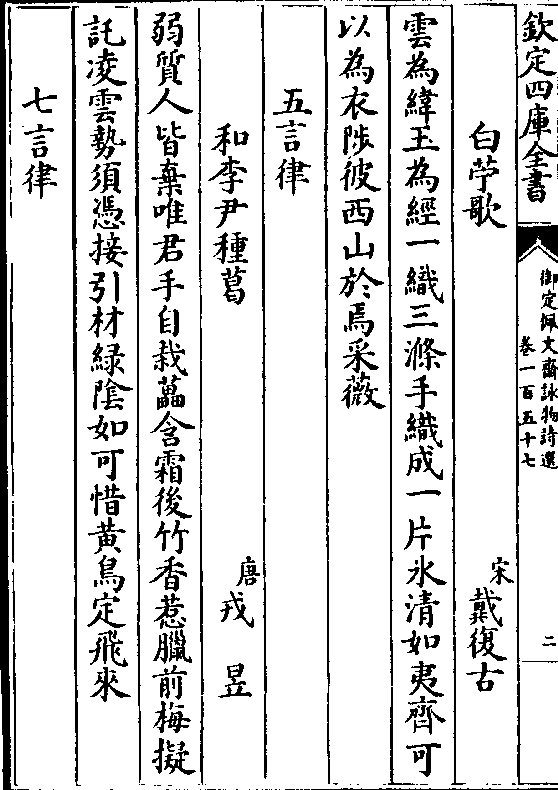 欽定四庫全書
御定佩文齋詠物詩選
卷一百五十七
二
白苧歌
宋戴復古
雲為緯玉為經一織三滌手織成一片氷清如夷齊可
以為衣陟彼西山於焉采薇
五言律
和李尹種葛
唐戎昱
弱質人皆棄唯君手自栽虆含霜後竹香惹臘前梅擬
託凌雲勢須憑接引材緑陰如可惜黄鳥定飛來
七言律